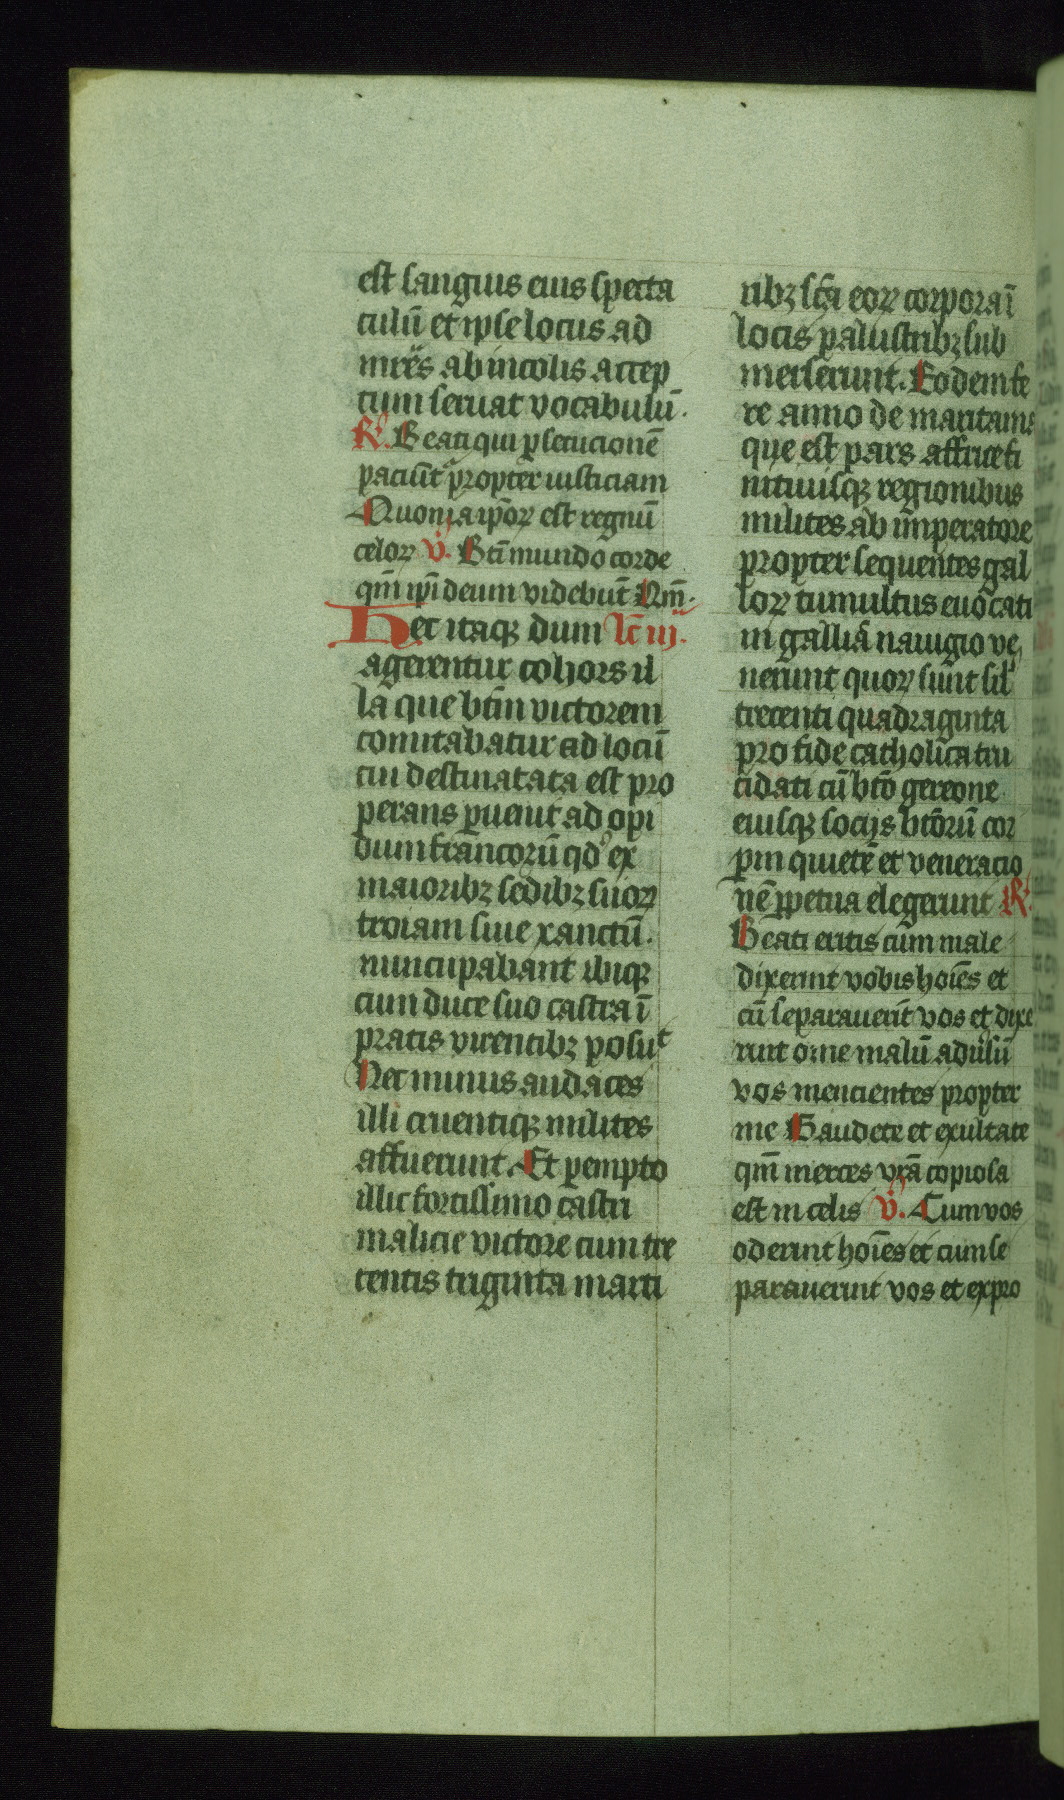 est sanguis eius specta
culū et ipse locus ad
mr̄es ab incolis accep
tum seruat vocabulū.
R̷. Beati qui ꝑsecucionē
paciūt propter iusticiam
Quoniā ip̄oꝝ est regnū
celoꝝ V̷. Bt̄i mundo corde
qm̄ ip̄i deum videbūt Qm̄.
Hec itaqꝫ dum lc̄ iij.
agerentur cohors il
la que bt̄m victorem
comitabatur ad locū
cui destinatata est pro
perans ꝑuenit ad opi
dum francorū qd ex
maioribꝫ sedibꝫ suoꝝ
troiam siue xanctū.
nuncupabant ibiqꝫ
cum duce suo castra ī
pratis virentibꝫ posuit
Nec minus audaces
illi cruentiqꝫ milites
affuerunt. Et ꝑempto
illic fortissimo castri
malicie victore cum tre
centis triginta marti
ribꝫ sc̄a eoꝝ corpora ī
locis palustribꝫ sub
merserunt. Eodem fe
re anno de maritams
que est pars affrice fi
nitiuisqꝫ regionibus
milites ab imperatore
propter sequentes gal
loꝝ tumultus euocati
in galliā nauigio ve
nerunt quoꝝ sunt sil̓
trecenti quadraginta
pro fide catholica tru
cidati cū bt̄o gereone
eiusqꝫ socijs bt̄orū cor
ꝑm quietē et veneracio
nē ꝑpetua elegerunt R̷.
Beati eritis cum male
dixerint vobis hoīes et
cū separauerīt vos et dixe
rint om̄e malū aduersū
vos mencientes propter
me Gaudete et exultate
qm̄ merces vr̄a copiosa
est in celis V̷. Cum vos
oderint hoīes et cum se
parauerint vos et expro